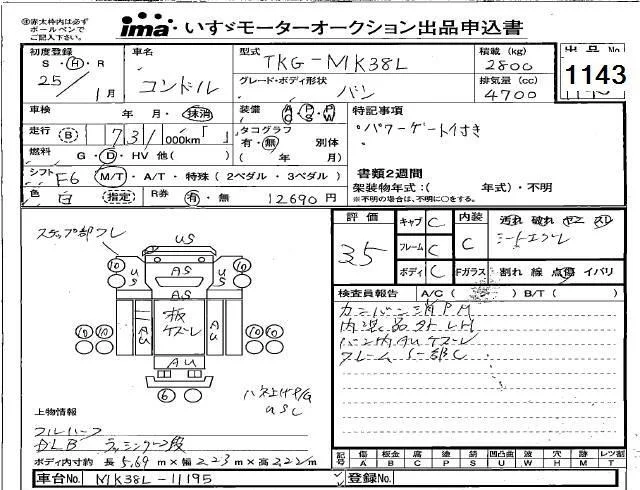 ※赤太枠内は必ず
ボールペンで
ご記入下さい。
ima いすゞモーターオークション出品申込書
初度登録 S・H・R 25/1月
車名 コンドル
型式 TKG-MK38L
グレード・ボディ形状 バン
積載 (kg) 2800
排気量 (cc) 4700
出品No
1143
車検 年 月・抹消
装備 A/C P/S P/W
特記事項
・パワーゲート付き
走行 B 731 000km「 」
タコグラフ 有・無 別体
( 年 月)
燃料 G・D・HV 他( )
書類2週間
架装物年式:( 年式)・不明
※不明の場合は、不明に○をする。
シフト F6 M/T・A/T・特殊(2ペダル・3ペダル)
色 白 (指定) R券 有・無 12690円
評価 3.5
キャブ C
フレーム C
ボディ C
内装 C
汚れ 破れ ヤニ スレ
シートコゲ
Fガラス 割れ 線 点傷 イバリ
検査員報告 A/C( ) B/T( )
カンバン消 P.M
内装品外レ ハリ
バン内AU ケズーレ
フレーム S一部C
ステップ部ワレ
US
10 10
US AS US
AS
板ケズーレ
AU AU
10 10
AU
6
ハネ上げP/G
USC
上物情報
フルハーフ
ALB ラッシング2段
ボディ内寸約 長 5.69 m×幅 2.23 m×高 2.22 m
記号 傷 A 板金 B 腐 C 塗 P 錆 S 凹凸曲 U W 穴 H ×跡 M レツ割 T
車台No. MK38L-11195
登録No.